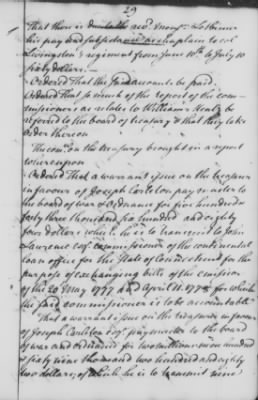 29
That there is due to the revd. monsr. Lotbiniere
his pay and subsistance as chaplain to col
Livingston's regiment from June 10th to July 10
sixty dollars.
Ordered That the said accounts be paid
Ordered That so much of the report of the com-
missioners as relates to William Healy be
referred to the board of treasury & that they take
order thereon
The comee. on the treasury brought in a report
whereupon
Ordered That a warrant issue on the treasurer
in favour of Joseph Carleton pay master to
the board of war & ordnance for five hundred
forty three thousand six hundred and eighty
four dollars which he is to transmit to John
Lawrence esqr. commissioner of the continental
loan office for the State of Connecticut for the
purpose of exchanging bills of the emission
of the 20 May 1777 and April 11. 1778 for which
the said commissioner is to be accountable
That a warrant issue on the treasurer in favour
of Joseph Carleton esqr. paymaster to the board
of war and ordnance for two million nine hundred
& sixty nine thousand two hundred and eighty
two dollars, of which he is to transmit nine